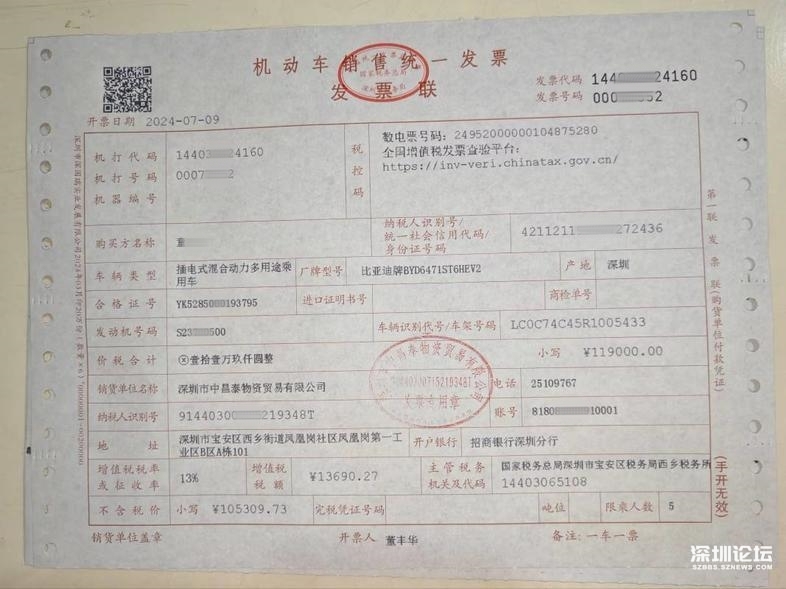 机动车销售统一发票
发票联
发票代码 144 24160
发票号码 000 52
开票日期 2024-07-09
机打代码 1440 4160
机打号码 0007 2
机器编号
税控码
数电票号码: 24952000000104875280
全国增值税发票查验平台:
https://inv-veri.chinatax.gov.cn/
购买方名称 董
纳税人识别号/
统一社会信用代码/
身份证号码
4211211 272436
车辆类型 插电式混合动力多用途乘用车 厂牌型号 比亚迪牌BYD6471ST6HEV2 产地 深圳
合格证号 YK52850 193795 进口证明书号 商检单号
发动机号码 S23 500 车辆识别代号/车架号码 LC0C74C45R1005433
价税合计 ⊗壹拾壹万玖仟圆整 小写 ¥119000.00
销货单位名称 深圳市中昌泰物资贸易有限公司 电话 25109767
纳税人识别号 9144030 219348T 账号 8180 10001
地址 深圳市宝安区西乡街道凤凰岗社区凤凰岗第一工业区B区A栋101 开户银行 招商银行深圳分行
增值税税率或征收率 13% 增值税税额 ¥13690.27 主管税务机关及代码 国家税务总局深圳市宝安区税务局西乡税务所
14403065108
不含税价 小写 ¥105309.73 完税凭证号码 吨位 限乘人数 5
销货单位盖章 开票人 董丰华 备注: 一车一票
第一联 发票联(购货单位付款凭证)
(手开无效)
国家税务总局
发票专用章
深圳论坛
SZBBS.SZNEWS.COM